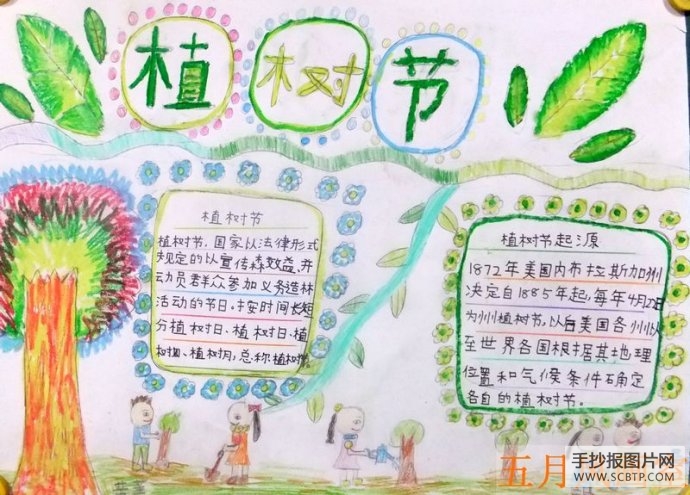 植树节
植树节
植树节，国家以法律形式
规定的以宣传森效益，并
动员群众参加义务造林
活动的节日。按时间长短
分植树日、植树日、植
树周、植树月，总称植树节。
植树节起源
1872年美国内布拉斯加州
决定自1885年起，每年4月22日
为州植树节，以后美国各州以
至世界各国根据其地理
位置和气候条件确定
各自的植树节。
五月
手抄报图片网
WWW.SCBTP.COM